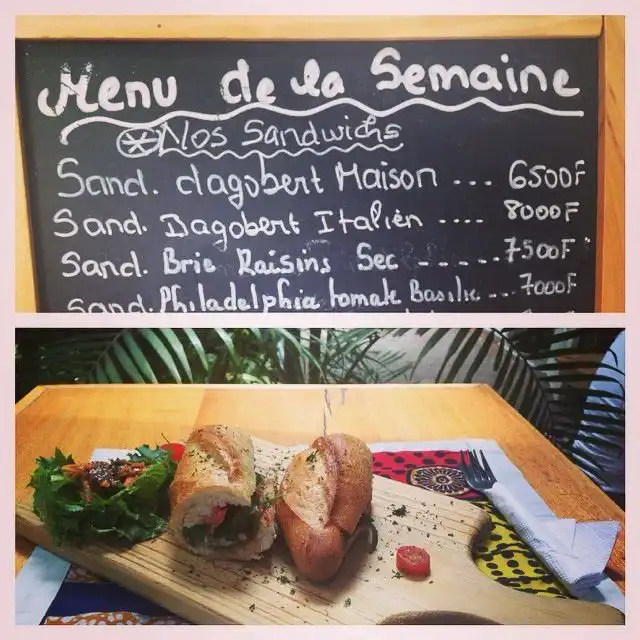 Menu de la Semaine
Nos Sandwichs
Sand. dagobert Maison ... 6500F
Sand. Dagobert Italien .... 8000F
Sand. Brie Raisins Sec ..... 7500F
Sand. Philadelphia tomate Basilic ... 7000F